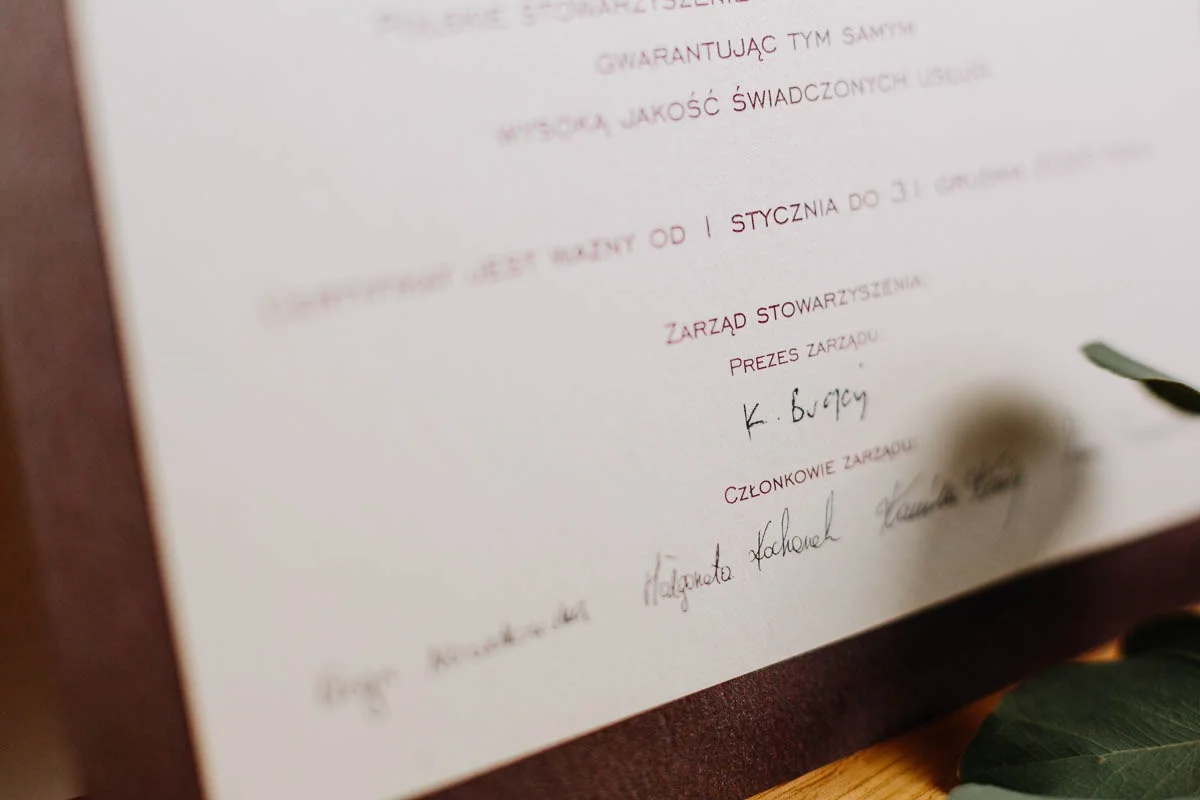 POLSKIE STOWARZYSZENIE
GWARANTUJĄC TYM SAMYM
WYSOKĄ JAKOŚĆ ŚWIADCZONYCH USŁUG
CERTYFIKAT JEST WAŻNY OD 1 STYCZNIA DO 31 GRUDNIA
ZARZĄD STOWARZYSZENIA:
PREZES ZARZĄDU:
K.
CZŁONKOWIE ZARZĄDU:
Małgorzata Kochanek Kamila